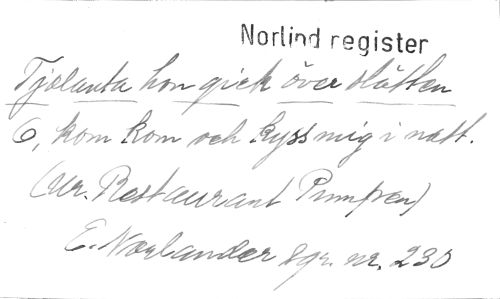 Norlind register
Tjolanta hon gick över slätten
O, kom kom och kyss mig i natt.
(ur. Restaurant Pumpen)
E. Norlander sgr. nr. 230